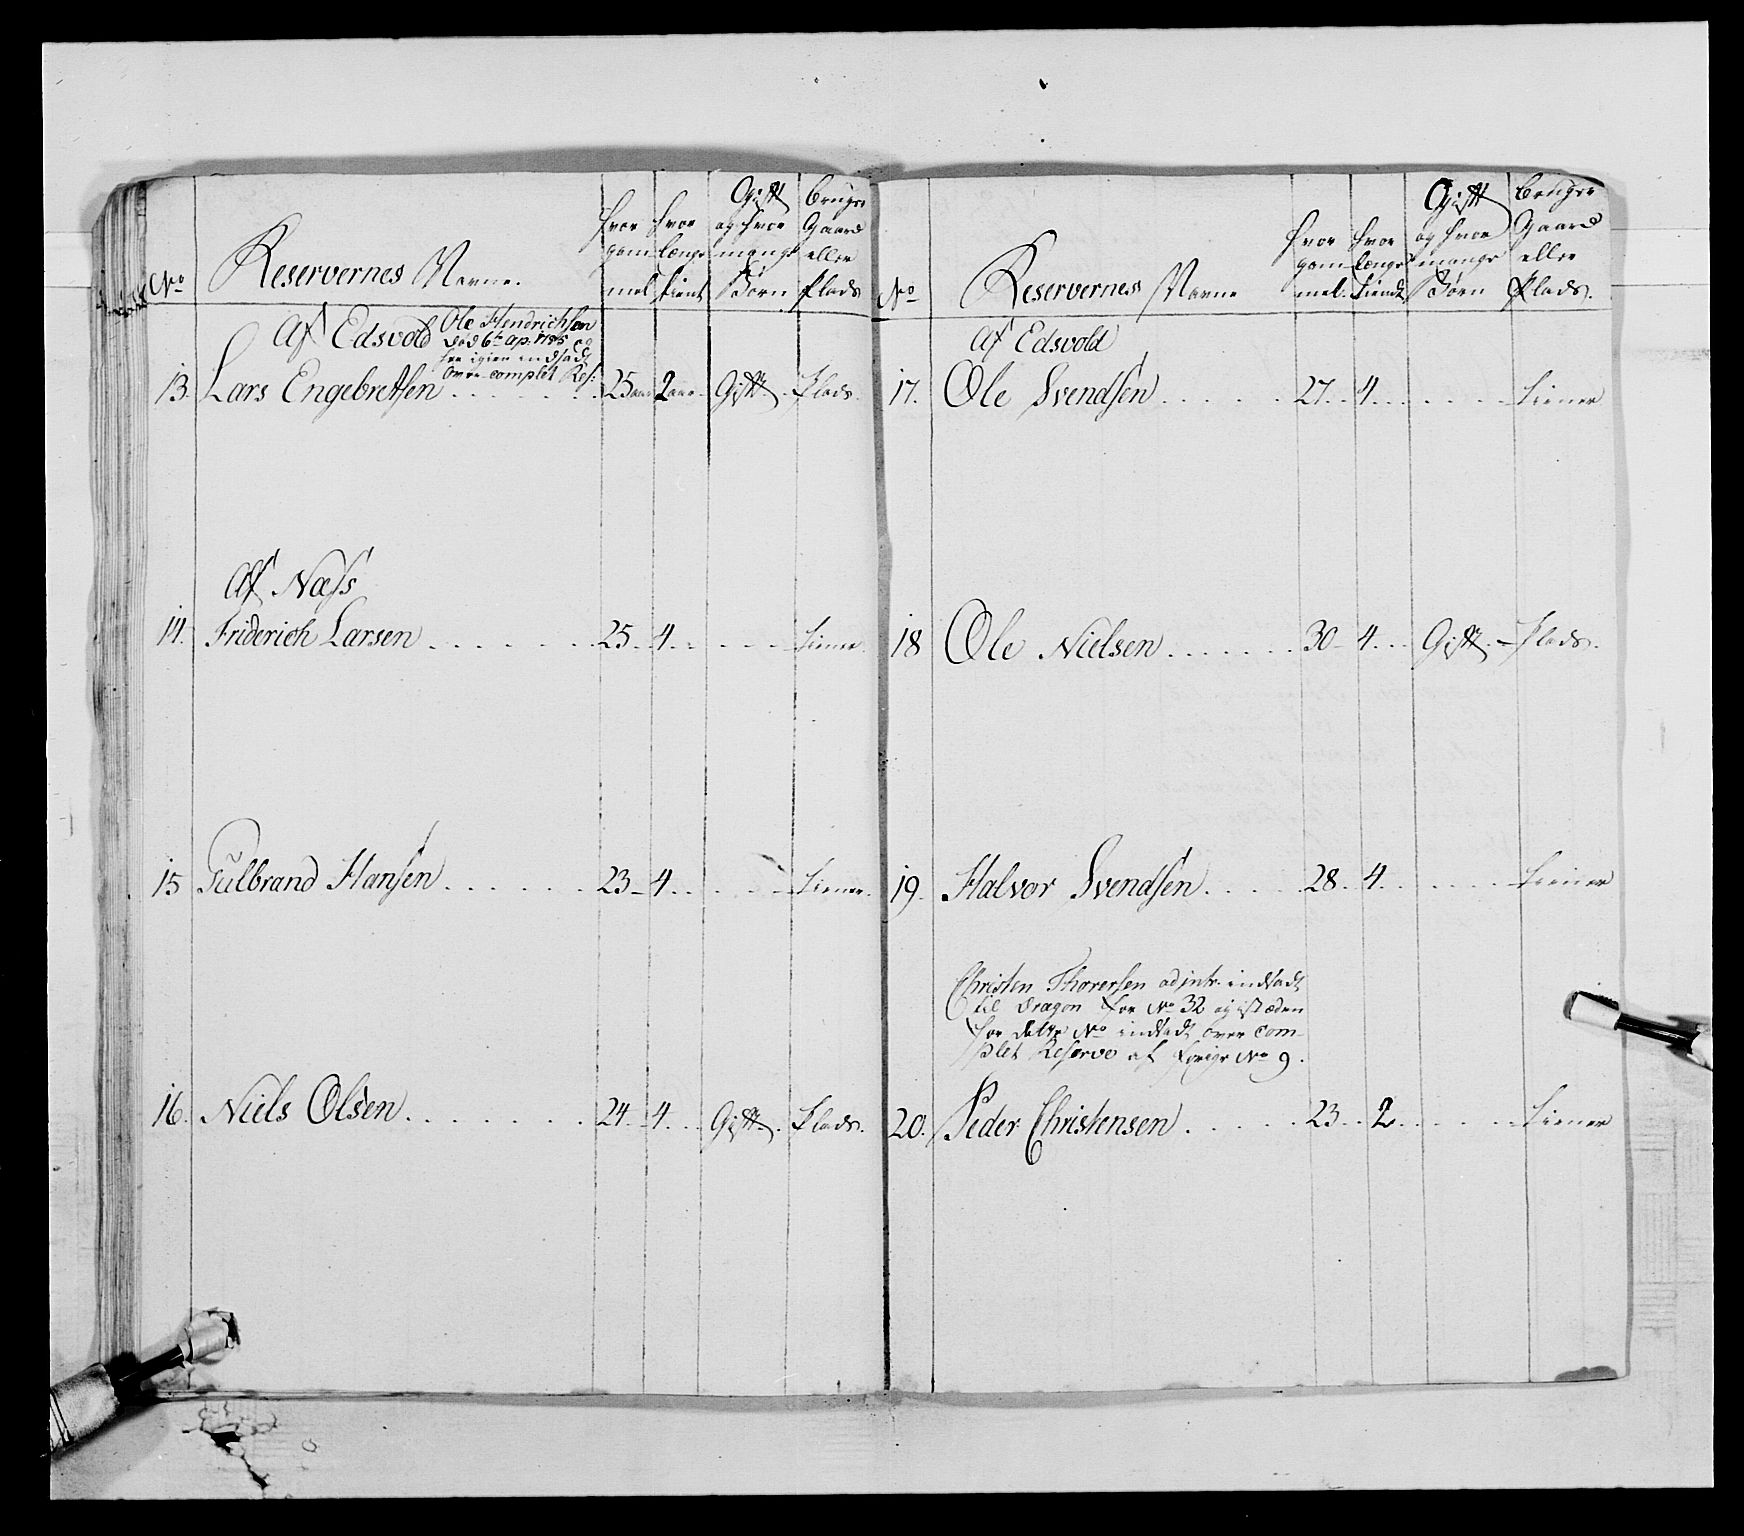 No
Reservernes Navne.
hvor gammel
hvor længe tient
Gift og hvor mange Børn
bruger Gaard eller Plads
Af Edsvold
Ole Hendrichsen
død 6te Ap: 1785 og
her igien indsadt
over complet Res:
13. Lars Engebretsen 25 aar 2 aar Gift. Plads.
Af Næss
14. Friderich Larsen 25 4 tiener
15 Gulbrand Hansen 23 4 tiener.
16. Niels Olsen 24 4 Gift. Plads.
No
Reservernes Navne
hvor gammel.
hvor længe tiendt
Gift og hvor mange Børn
bruger Gaard eller Plads.
Af Edsvold
17. Ole Svendsen 27 4 tiener
18 Ole Nielsen 30 4 Gift. Plads.
19. Halvor Svendsen 28 4 tiener
Christen Thorersen indsadt
til Dragon for No 32 og istæden
for dette No indsadt over com-
plet Reserve af forige No 9.
20. Peder Christensen 23 2 tiener